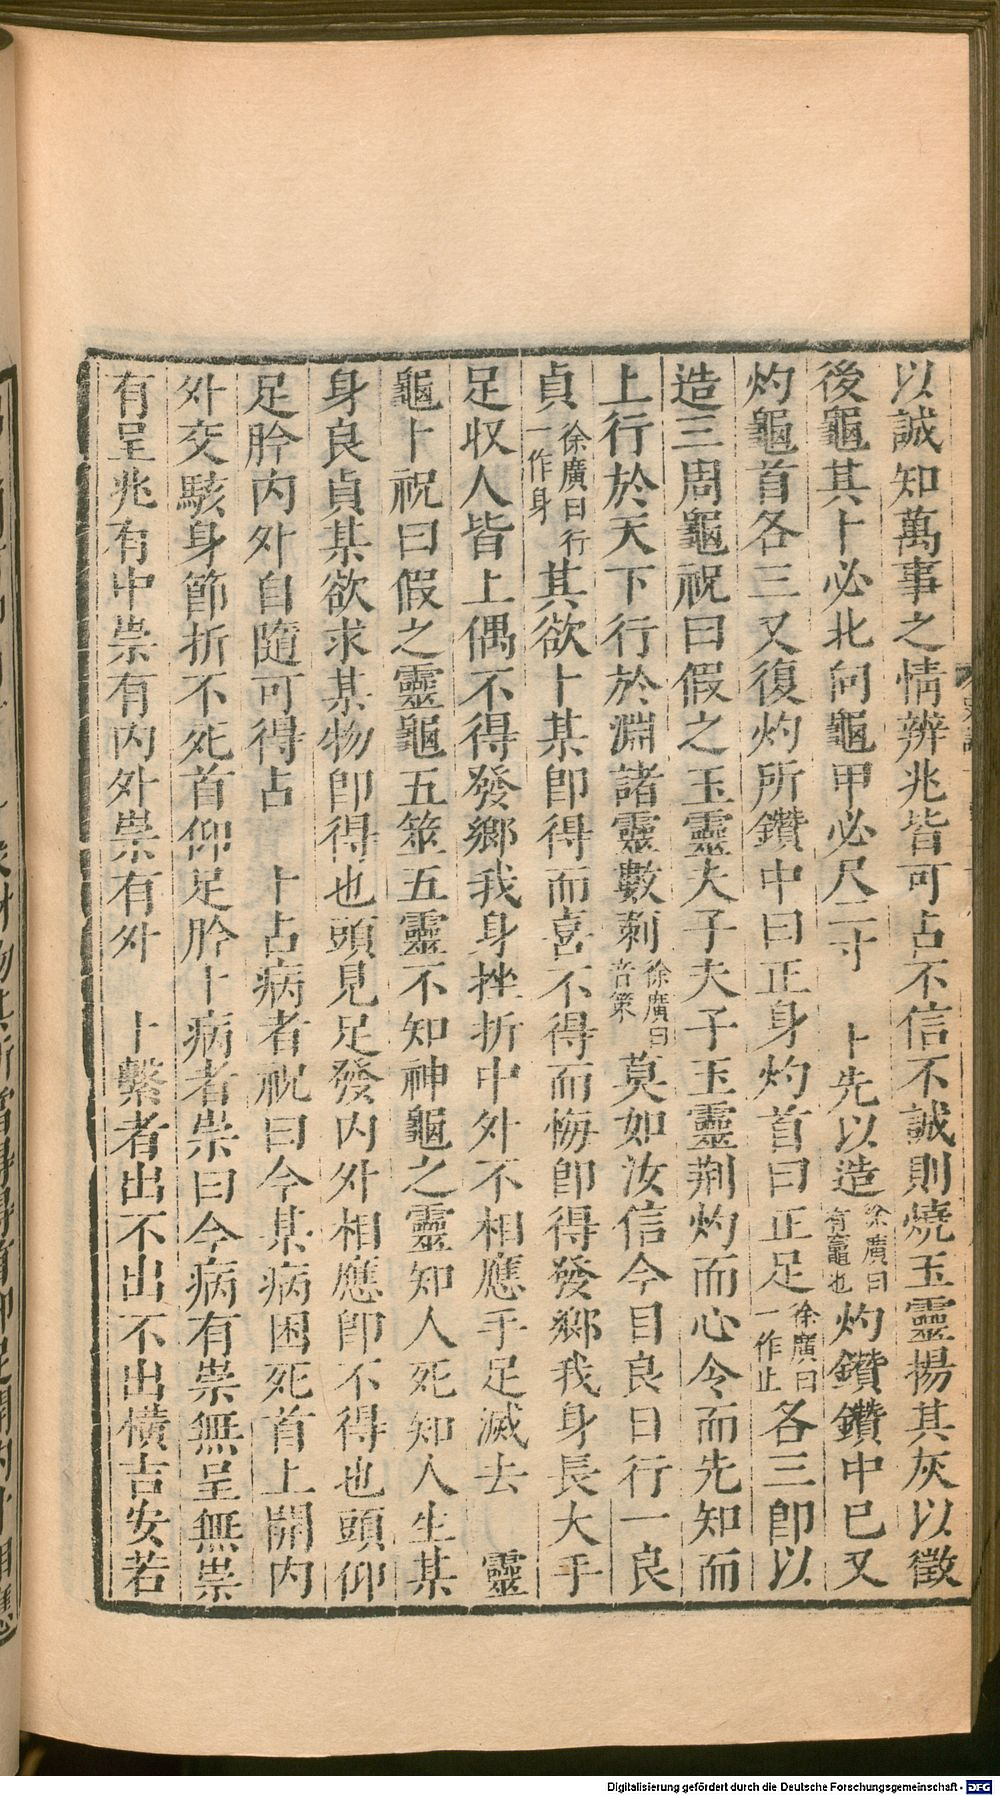 以誠知萬事之情辨兆皆可占不信不誠則燒玉靈揚其灰以徵
後龜其卜必北向龜甲必尺二寸　卜先以造徐廣曰有竈也灼鑽鑽中已又
灼龜首各三又復灼所鑽中曰正身灼首曰正足徐廣曰一作止各三卽以
造三周龜祝曰假之玉靈夫子夫子玉靈荆灼而心令而先知而
上行於天下行於淵諸靈數剌徐廣曰音策莫如汝信今目良日行一良
貞徐廣曰行一作身其欲卜某卽得而喜不得而悔卽得發鄉我身長大手
足收人皆上偶不得發鄉我身挫折中外不相應手足滅去　靈
龜卜祝曰假之靈龜五筮五靈不知神龜之靈知人死知人生某
身良貞某欲求某物卽得也頭見足發内外相應卽不得也頭仰
足肣内外自隨可得占　卜占病者祝曰今某病困死首上開内
外交駭身節折不死首仰足肣卜病者祟曰今病有祟無呈無祟
有呈兆有中祟有内外祟有外　卜繫者出不出不出横吉安若
Digitalisierung gefördert durch die Deutsche Forschungsgemeinschaft - DFG